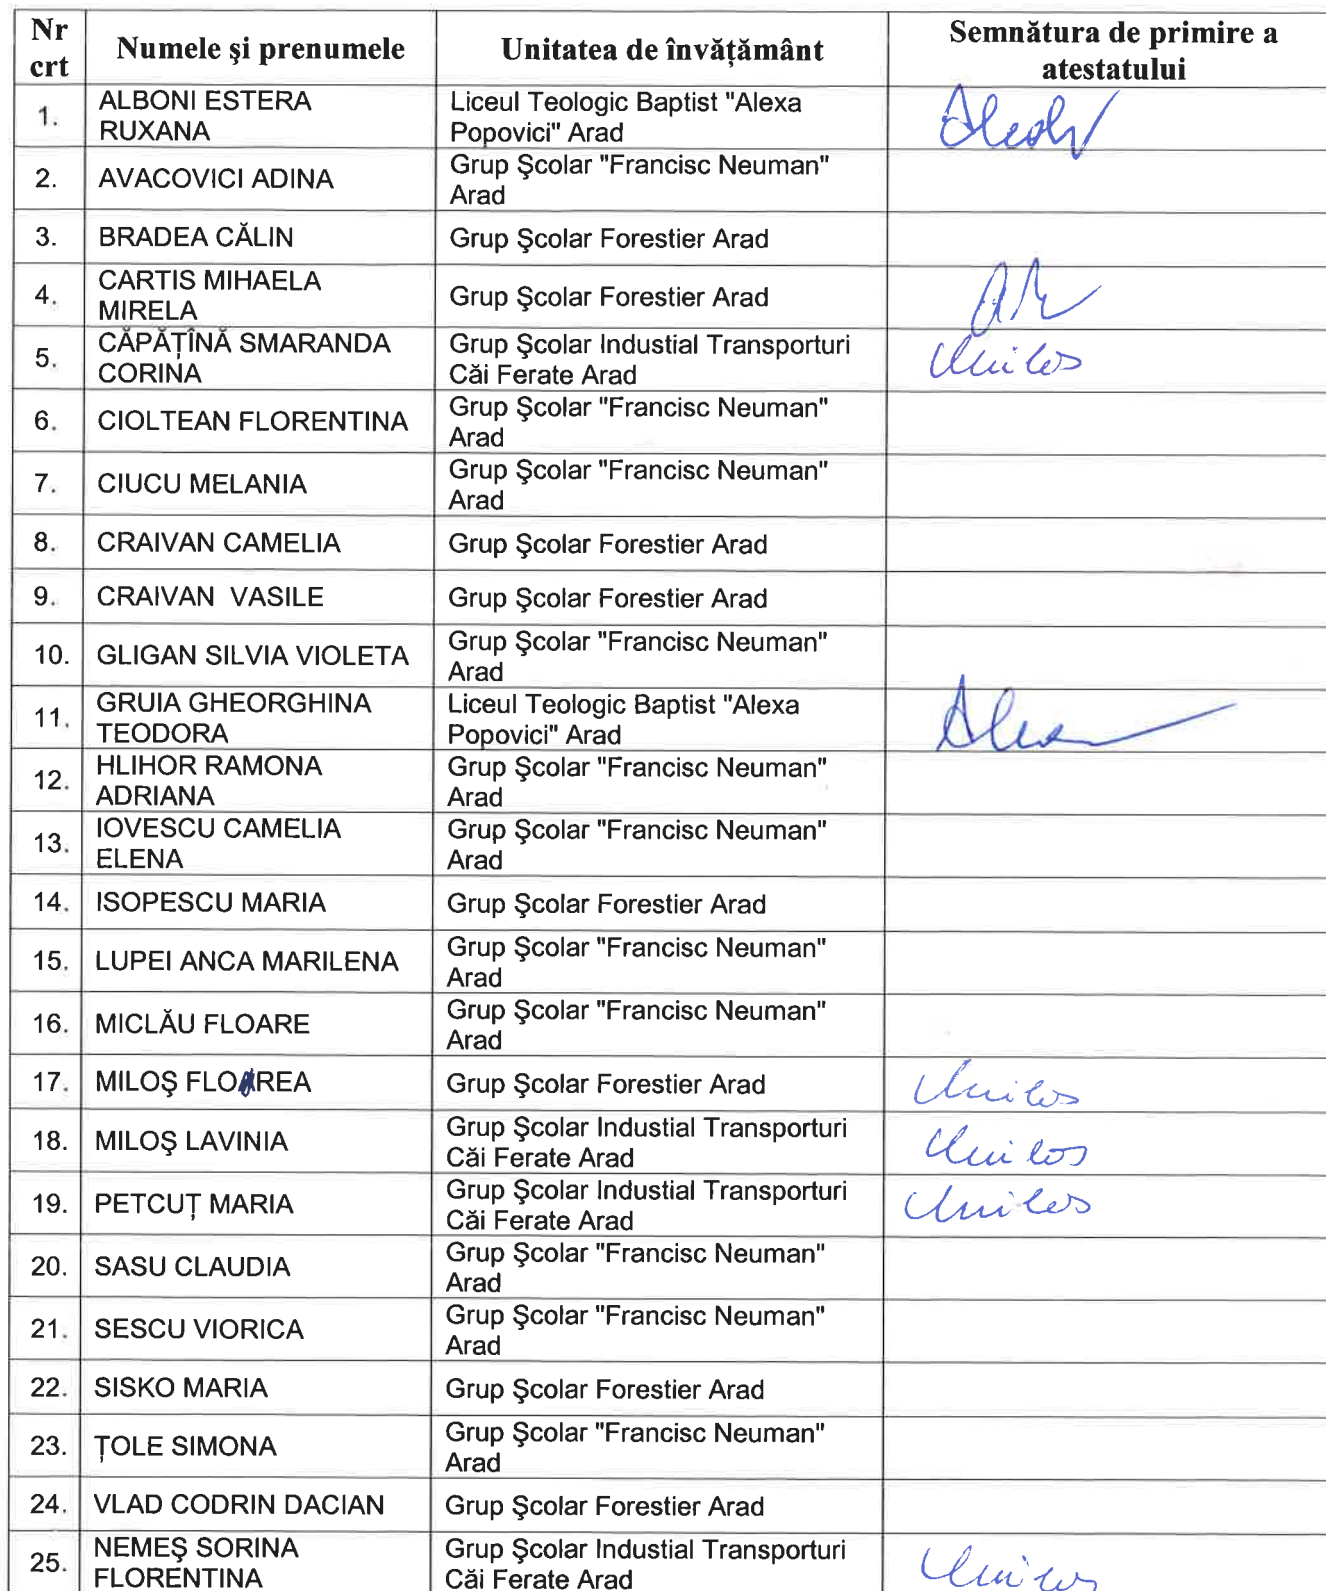 Nr crt Numele şi prenumele Unitatea de învăţământ Semnătura de primire a atestatului
1. ALBONI ESTERA RUXANA Liceul Teologic Baptist "Alexa Popovici" Arad
2. AVACOVICI ADINA Grup Şcolar "Francisc Neuman" Arad
3. BRADEA CĂLIN Grup Şcolar Forestier Arad
4. CARTIS MIHAELA MIRELA Grup Şcolar Forestier Arad
5. CĂPĂŢÎNĂ SMARANDA CORINA Grup Şcolar Industial Transporturi Căi Ferate Arad Milos
6. CIOLTEAN FLORENTINA Grup Şcolar "Francisc Neuman" Arad
7. CIUCU MELANIA Grup Şcolar "Francisc Neuman" Arad
8. CRAIVAN CAMELIA Grup Şcolar Forestier Arad
9. CRAIVAN VASILE Grup Şcolar Forestier Arad
10. GLIGAN SILVIA VIOLETA Grup Şcolar "Francisc Neuman" Arad
11. GRUIA GHEORGHINA TEODORA Liceul Teologic Baptist "Alexa Popovici" Arad
12. HLIHOR RAMONA ADRIANA Grup Şcolar "Francisc Neuman" Arad
13. IOVESCU CAMELIA ELENA Grup Şcolar "Francisc Neuman" Arad
14. ISOPESCU MARIA Grup Şcolar Forestier Arad
15. LUPEI ANCA MARILENA Grup Şcolar "Francisc Neuman" Arad
16. MICLĂU FLOARE Grup Şcolar "Francisc Neuman" Arad
17. MILOŞ FLOAREA Grup Şcolar Forestier Arad Milos
18. MILOŞ LAVINIA Grup Şcolar Industial Transporturi Căi Ferate Arad Milos
19. PETCUŢ MARIA Grup Şcolar Industial Transporturi Căi Ferate Arad Milos
20. SASU CLAUDIA Grup Şcolar "Francisc Neuman" Arad
21. SESCU VIORICA Grup Şcolar "Francisc Neuman" Arad
22. SISKO MARIA Grup Şcolar Forestier Arad
23. ŢOLE SIMONA Grup Şcolar "Francisc Neuman" Arad
24. VLAD CODRIN DACIAN Grup Şcolar Forestier Arad
25. NEMEŞ SORINA FLORENTINA Grup Şcolar Industial Transporturi Căi Ferate Arad Milos